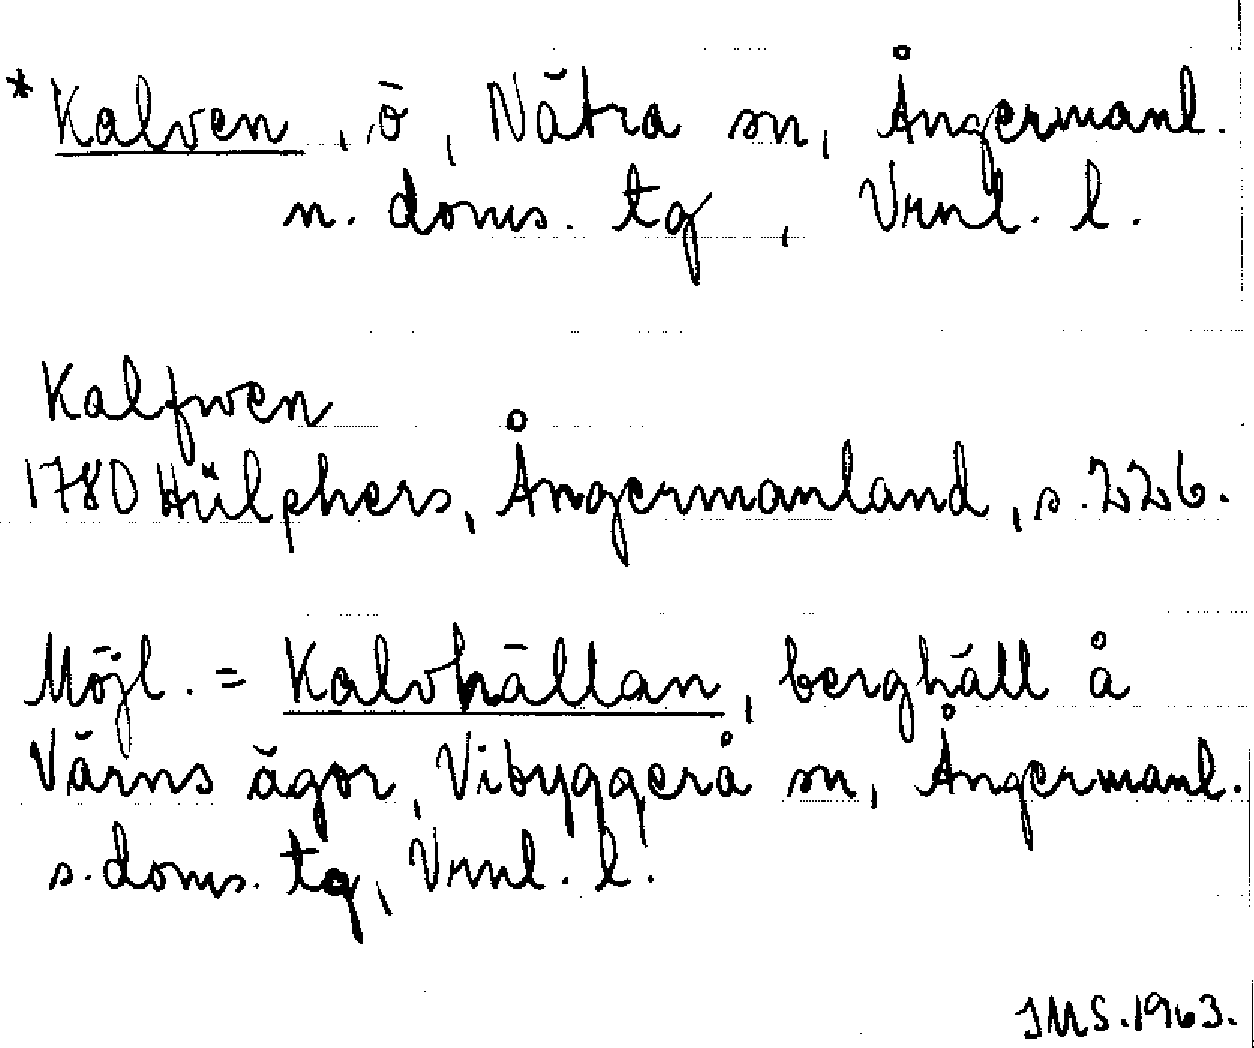 *Kalven, ö, Nätra sn, Ångermanl.
n. doms. tg, Vrnl. l.
Kalfwen
1780 Hülphers, Ångermanland, s. 226.
Möjl. = Kalvhällan, berghäll å
Värns ägor, Vibyggerå sn, Ångermanl.
s. doms. tg, Vrnl. l.
JMS. 1963.